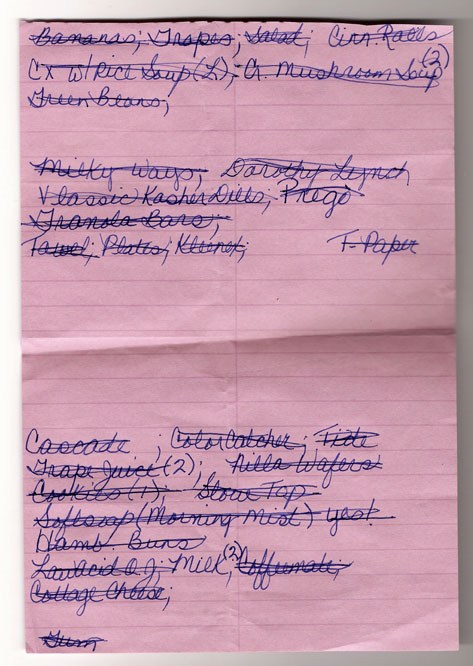 Bananas, Grapes, Salad; Cinn. Rolls
Cx w/Rice Soup (2); Cr. Mushroom Soup (2)
Green Beans,
Milky Ways, Dorothy Lynch
Vlassic Kosher Dills, Prego
Granola Bars,
Towel, Plates, Kleenex, T-Paper
Cascade, Color Catcher, Tide
Grape Juice (2), Nilla Wafers
Cookies (1), Stove Top
Softsoap (Morning Mist) yes!
Hamb. Buns
Low acid O.J. Milk (2), Coffeemate,
Cottage Cheese,
Gum